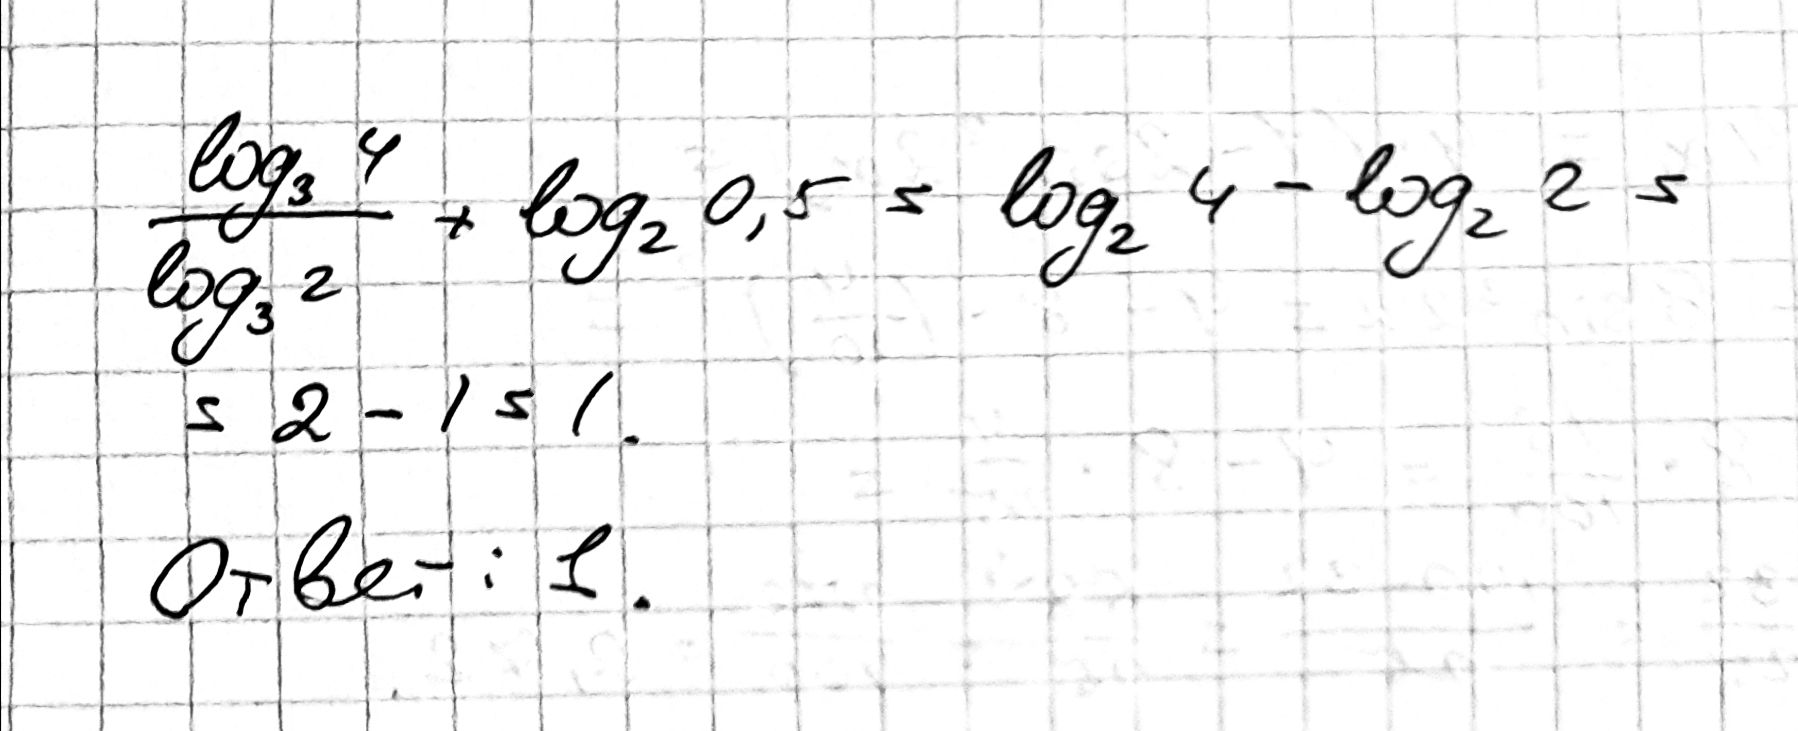 log₃ 4 / log₃ 2 + log₂ 0,5 = log₂ 4 - log₂ 2 =
= 2 - 1 = 1.
Ответ: 1.